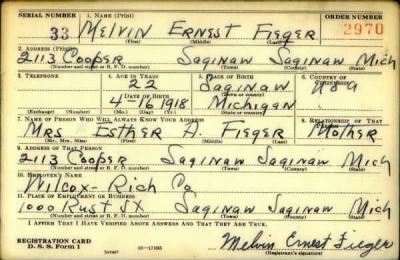 SERIAL NUMBER 1. NAME (Print) ORDER NUMBER
33 MELVIN ERNEST FIEGER 2970
(First) (Middle) (Last)
2. ADDRESS (Print)
2113 Cooper Saginaw Saginaw Mich
(Number and street or R. F. D. number) (Town) (County) (State)
3. TELEPHONE 4. AGE IN YEARS 5. PLACE OF BIRTH 6. COUNTRY OF CITIZENSHIP
22 Saginaw
DATE OF BIRTH
4-16 1918 Michigan USA
(Exchange) (Number) (Mo.) (Day) (Yr.) (State or country)
7. NAME OF PERSON WHO WILL ALWAYS KNOW YOUR ADDRESS 8. RELATIONSHIP OF THAT PERSON
Mrs Esther A. Fieger Mother
(Mr., Mrs., Miss) (First) (Middle) (Last)
9. ADDRESS OF THAT PERSON
2113 Cooper Saginaw Saginaw Mich
(Number and street or R. F. D. number) (Town) (County) (State)
10. EMPLOYER'S NAME
Wilcox-Rich Co
11. PLACE OF EMPLOYMENT OR BUSINESS
1000 Rust Saginaw Saginaw Mich
(Number and street or R. F. D. number) (Town) (County) (State)
I AFFIRM THAT I HAVE VERIFIED ABOVE ANSWERS AND THAT THEY ARE TRUE.
REGISTRATION CARD
D. S. S. Form 1 Melvin Ernest Fieger
(Registrant's signature)